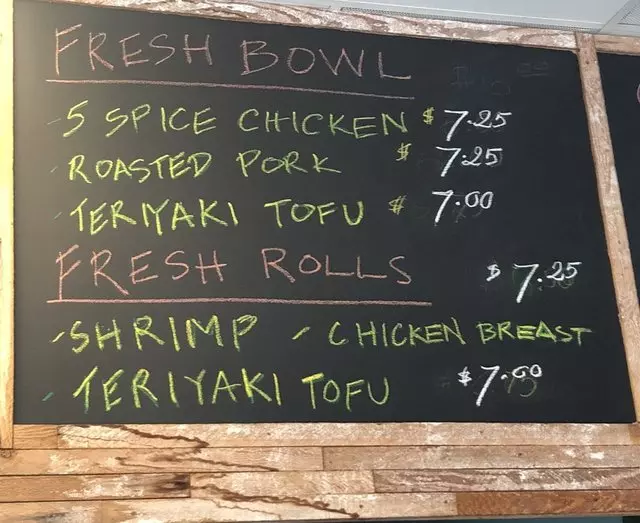 FRESH BOWL
- 5 SPICE CHICKEN $ 7.25
- ROASTED PORK $ 7.25
- TERIYAKI TOFU $ 7.00
FRESH ROLLS $ 7.25
- SHRIMP - CHICKEN BREAST
- TERIYAKI TOFU $ 7.00